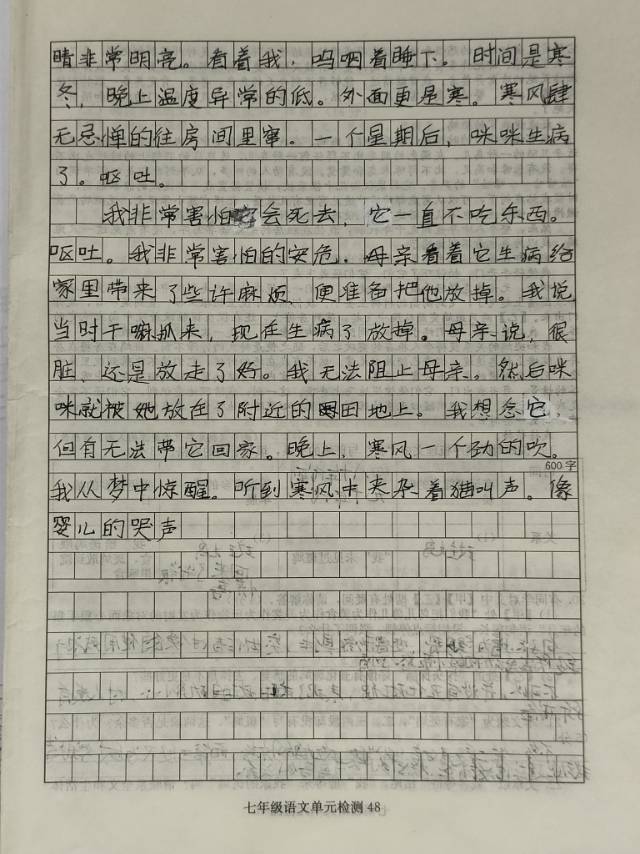 睛非常明亮。看着我，呜咽着睡下。时间是寒
冬，晚上温度异常的低。外面更是寒。寒风肆
无忌惮的往房间里窜。一个星期后，咪咪生病
了。呕吐。
我非常害怕它会死去，它一直不吃东西。
呕吐。我非常害怕的安危。母亲看着它生病给
家里带来了些许麻烦、便准备把他放掉。我说
当时干嘛抓来，现在生病了放掉。母亲说，很
脏、还是放走了好。我无法阻止母亲。然后咪
咪就被她放在了附近的田地上。我想念它，
但有无法带它回家。晚上，寒风一个劲的吹。
600字
我从梦中惊醒。听到寒风中夹杂着猫叫声。像
婴儿的哭声
七年级语文单元检测48